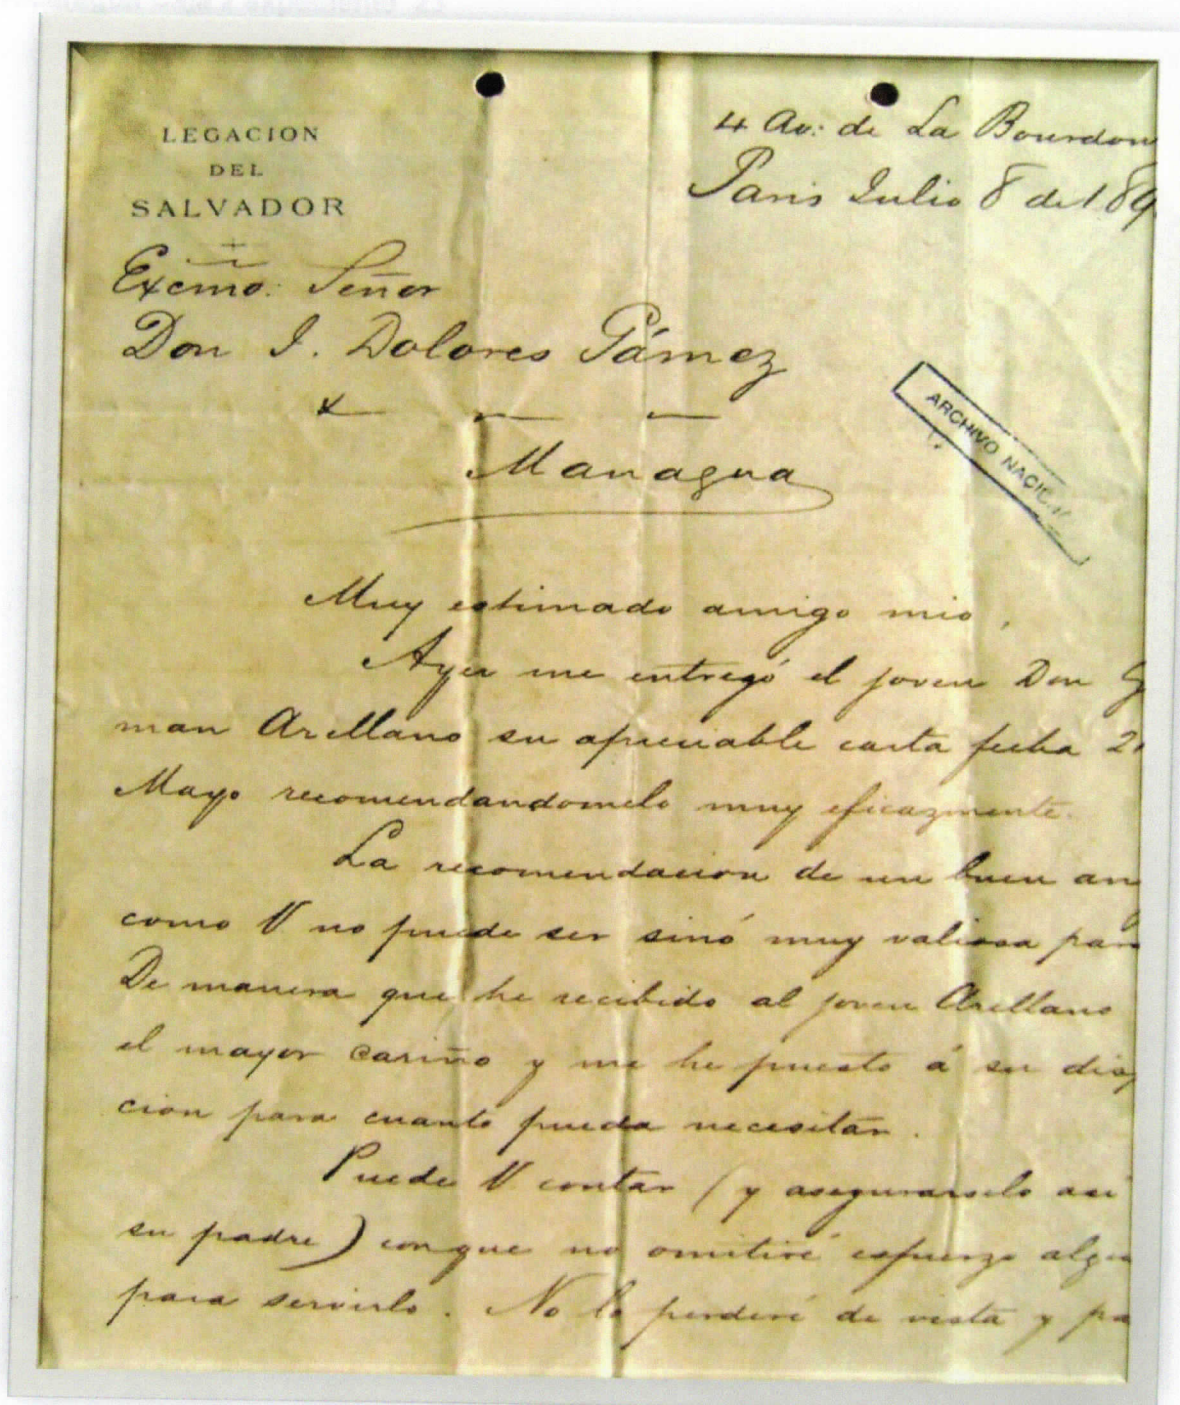 LEGACION
DEL
SALVADOR
4 Av: de La Bourdon
Paris Julio 8 de 189
Excmo. Señor
Don J. Dolores Gámez
Managua
ARCHIVO NACIONAL
Muy estimado amigo mio,
Ayer me entregó el joven Don G
man Arellano su apreciable carta fecha 2
Mayo recomendandomelo muy eficazmente.
La recomendacion de un buen am
como V no puede ser sinó muy valiosa para
De manera que he recibido al joven Arellano
el mayor cariño y me he puesto á su disp
cion para cuanto pueda necesitar.
Puede V contar (y asegurarselo asi
su padre) con que no omitiré esfuerzo algun
para servirlo. No lo perderé de vista y pa